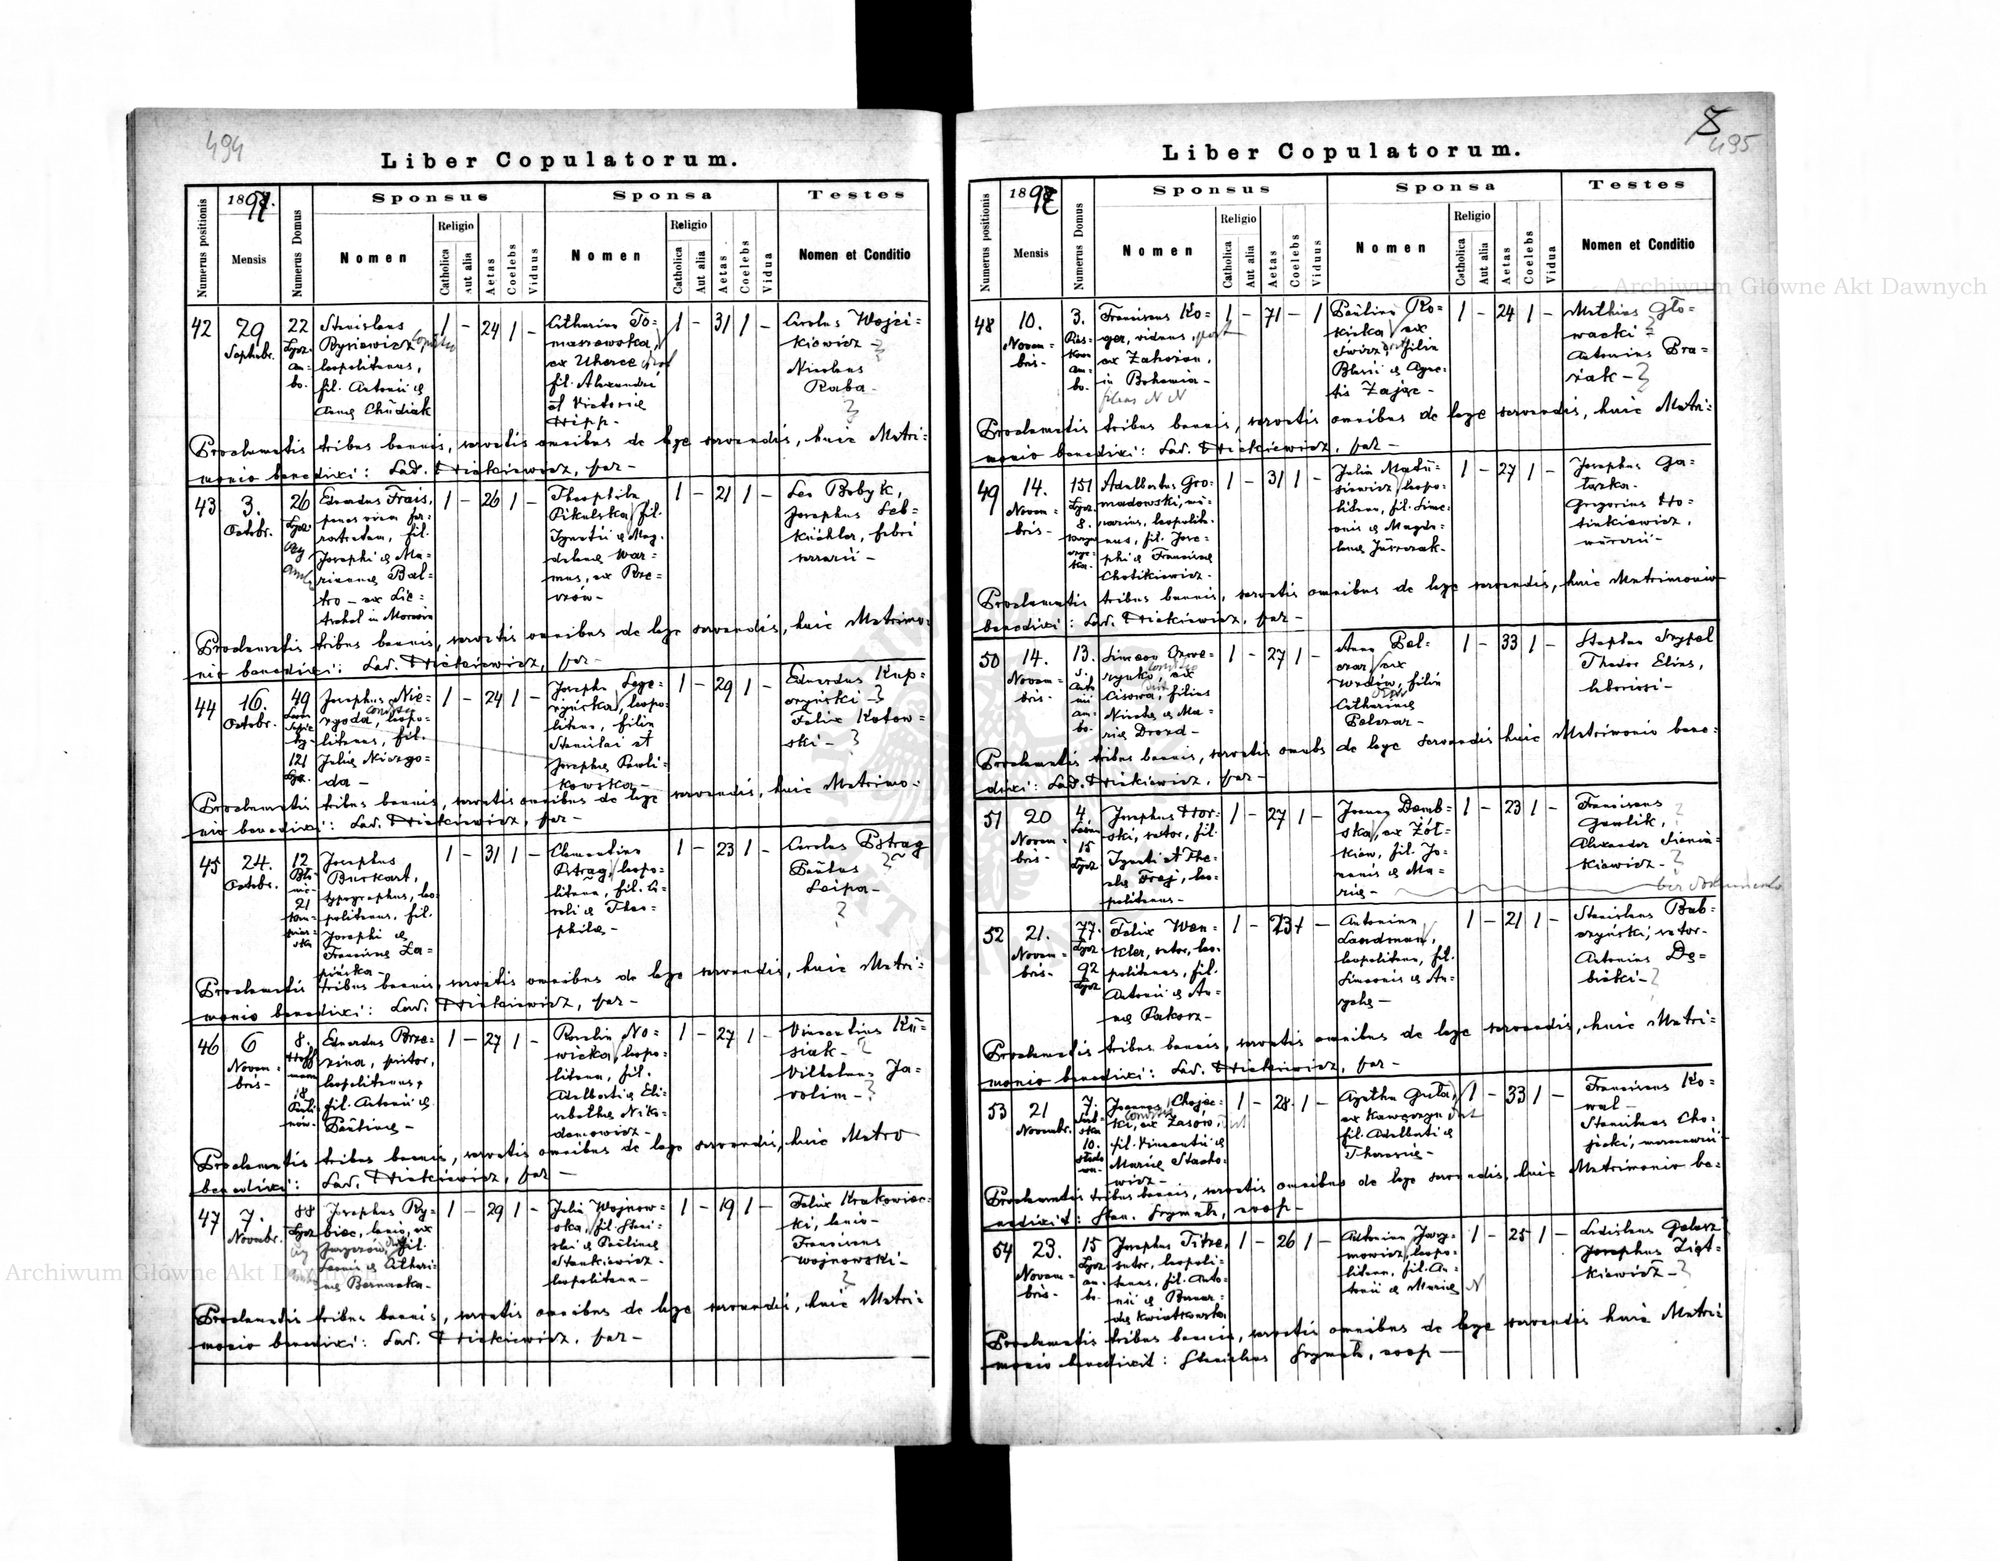 494
Liber Copulatorum.
Numerus positionis
1897.
Mensis
Numerus Domus
Sponsus
Nomen
Religio
Catholica
Aut alia
Aetas
Coelebs
Viduus
Sponsa
Nomen
Religio
Catholica
Aut alia
Aetas
Coelebs
Vidua
Testes
Nomen et Conditio
42
29
Septembr.
22
Łycz.
am-
bo.
Stanislaus
Ryniewicz,
leopolitanus,
fil. Antonii &
Annae Chudiak
1 – 24 1 –
Catharina To=
maszewska,
ex Uherce
fil. Alexandri
et Victoriae
Hipp.
1 – 31 1 –
Carolus Wojci=
kiewicz –
Nicolaus
Raba –
?
Proclamatis tribus bannis, servatis omnibus de lege servandis, huic Matri=
monio benedixi: Lad. Hickiewicz, par –
43
3.
Octobr.
26
Łycz
Eduardus Frais,
penes viam fer=
ratam, fil.
Josephi & Ma=
rianae Bal=
tro – ex Lie=
in Moravia
1 – 26 1 –
Theophila
Pikulska, fil.
Ignatii & Mag=
dalenae War=
mus, ex Rze=
szów –
1 – 21 1 –
Leo Bobyk,
Josephus Leb=
küchler, fabri
serrarii –
Proclamatis tribus bannis, servatis omnibus de lege servandis, huic Matrimo=
nio benedixi: Lad. Hickiewicz, par –
44
16.
Octobr.
49
Leon
Sapie
hy –
121
Łycz.
Josephus Nie=
zgoda, leopo=
litanus, fil.
Juliae Niezgo=
da –
1 – 24 1 –
Josepha Szcze=
rzyńska, leopo=
litana, filia
Stanislai et
Josephae Pawli=
kowska –
1 – 29 1 –
Eduardus Kup=
czyński – ?
Felix Kotow=
ski – ?
Proclamatis tribus bannis, servatis omnibus de lege servandis, huic Matrimo=
nio benedixi: Lad. Hickiewicz, par –
45
24.
Octobr.
12
21
Josephus
Burkart,
typographus, leo=
politanus, fil.
Josephi &
Franciscae La=
pińska –
1 – 31 1 –
Clementina
Pstrag, leopo=
litana, fil. Ca=
roli & Theo=
philae –
1 – 23 1 –
Carolus Pstrag
Paulus ?
Leipa –
?
Proclamatis tribus bannis, servatis omnibus de lege servandis, huic Matri=
monio benedixi: Lad. Hickiewicz, par –
46
6
Novem=
bris –
8.
Hoff
mana
18
Pauli
nów –
Eduardus Brze=
zina, pistor,
leopolitanus,
fil. Antonii &
Paulinae –
1 – 27 1 –
Rosalia No=
wicka, leopo=
litana, fil.
Adalberti & Eli=
sabethae Niko=
demowicz –
1 – 27 1 –
Vincentius Ku=
siak – ?
Vilhelmus Ja=
rolim – ?
Proclamatis tribus bannis, servatis omnibus de lege servandis, huic Matro
benedixi: Lad. Hickiewicz, par –
47
7.
Novembr.
88
Łycz
Josephus Ry=
biec, lanio, ex
Jaryczów, fil.
Leonis & Cathari=
nae Bernacka –
1 – 29 1 –
Julia Wojnow=
ska, fil. Stani=
slai & Paulinae
Stankiewicz –
leopolitana –
1 – 19 1 –
Felix Krakowiec=
ki, lanio –
Franciscus
Wojnowski –
?
Proclamatis tribus bannis, servatis omnibus de lege servandis, huic Matri=
monio benedixi: Lad. Hickiewicz, par –
495
Liber Copulatorum.
Numerus positionis
1897
Mensis
Numerus Domus
Sponsus
Nomen
Religio
Catholica
Aut alia
Aetas
Coelebs
Viduus
Sponsa
Nomen
Religio
Catholica
Aut alia
Aetas
Coelebs
Vidua
Testes
Nomen et Conditio
48
10.
Novem=
bris –
3.
am=
bo.
Franciscus Ko=
ger, viduus,
ex Zahořan,
in Bohemia –
filius N N
1 – 71 – 1
Paulina Ko=
ex
Świrz, filia
Blasii & Agne=
tis Zając –
1 – 24 1 –
Mathias Gło=
wacki ?
Antonius Pra=
żak – ?
Proclamatis tribus bannis, servatis omnibus de lege servandis, huic Matri=
monio benedixi: Lad. Hickiewicz, par –
49
14.
Novem=
bris –
151
Łycz.
8.
Adalbertus Gro=
madowski, mu=
rarius, leopolit=
anus, fil. Jose=
phi & Franciscae
Chotikiewicz –
1 – 31 1 –
Julia Matu=
siewicz, leopo=
litana, fil. Sime=
onis & Magda=
lenae Juszczak –
1 – 27 1 –
Josephus Ga=
łązka –
Gregorius Ho=
tinkiewicz,
murarii –
Proclamatis tribus bannis, servatis omnibus de lege servandis, huic Matrimonio
benedixi: Lad. Hickiewicz, par –
50
14.
Novem=
bris –
13.
am=
bo.
Simeon
ex
Cisowa, filius
Nicolai & Ma=
riae Drozd –
1 – 27 1 –
Anna Pel=
czar, ex
Wzdów, filia
Catharinae
Pelczar –
1 – 33 1 –
Stephan Szypel
Theodor Elias,
laboriosi –
Proclamatis tribus bannis, servatis omnibs de lege servandis huic Matrimonio bene=
dixi: Lad. Hickiewicz, par –
51
20
Novem=
bris –
4.
15
Łycz
Josephus Hor=
ski, sutor, fil.
Ignatii et The=
clae Fraj, leo=
politanus –
1 – 27 1 –
Joanna Domb=
ska, ex Żół=
kiew, fil. Jo=
annis & Ma=
riae –
1 – 23 1 –
Franciscus ?
Gawlik,
Alexander Sienin=
kiewicz – ?
52
21.
Novem=
bris –
77.
Łycz
92
Łycz
Felix Wen=
kler, sutor, leo=
politanus, fil.
Antonii & An=
nae Pakosz –
1 – 23 1 –
Antonina
Landsman,
leopolitana, fil.
Simeonis & An=
gelae –
1 – 21 1 –
Stanislaus Bab=
czyński, sutor –
Antonius De=
bicki – ?
Proclamatis tribus bannis, servatis omnibus de lege servandis, huic Matri=
monio benedixi: Lad. Hickiewicz, par –
53
21
Novembr.
7.
10.
Joannes Chojec=
ki, ex Zasów,
fil. Vincentii &
Mariae Stacho=
wicz –
1 – 28 1 –
Agatha Guła,
ex Kawęczyn
fil. Adalberti &
Theresiae –
1 – 33 1 –
Franciscus Ko=
wal –
Stanislaus Cho=
jecki, mercenarii –
Proclamatis tribus bannis, servatis omnibus de lege servandis, huic Matrimonio be=
nedixit: Stan. Szymala, coop –
54
23.
Novem=
bris –
15
Łycz
am=
bo.
Josephus Titze,
sutor, leopoli=
tanus, fil. Anto=
nii & Bernar=
dae Kwiatkowska
1 – 26 1 –
Antonina Jarzy=
mowicz, leopo=
litana, fil. An=
tonii & Mariae N
1 – 25 1 –
Ladislaus Golarz
Josephus Zigt=
kiewicz – ?
Proclamatis tribus bannis, servatis omnibus de lege servandis huic Matri=
monio benedixit: Stanislaus Szymala, coop –
Archiwum Główne Akt Dawnych
Archiwum Główne Akt Dawnych